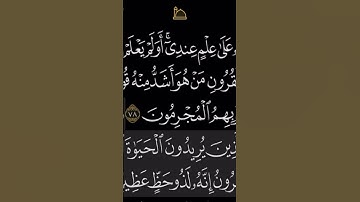 عَلَىٰ عِلْمٍ عِندِىٓۚ أَوَلَمْ يَعْلَمْ
قُرُونِ مَنْ هُوَ أَشَدُّ مِنْهُ قُو
بِهِمُ ٱلْمُجْرِمُونَ ٧٨
ذِينَ يُرِيدُونَ ٱلْحَيَوٰةَ
رُونُ إِنَّهُۥ لَذُو حَظٍّ عَظِي